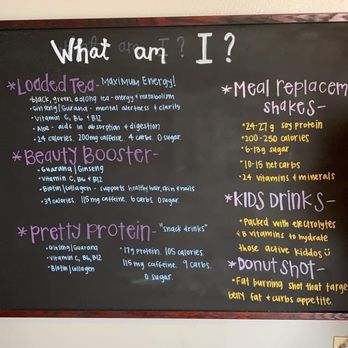 What am I?
*Loaded Tea- Maximum Energy!
• black, green, oolong tea - energy & metabolism
• Ginseng | Guarana - mental alertness & clarity
• Vitamin C, B6 & B12
• Aloe - aids in absorption & digestion
• 24 calories 200mg caffeine 4 carbs 0 sugar.
*Beauty Booster-
• Guarana | Ginseng
• Vitamin C, B6 & B12
• Biotin | Collagen - supports healthy hair, skin & nails
• 39 calories. 115 mg caffeine. 6 carbs 0 sugar.
*pretty protein- "snack drinks"
• Ginseng | Guarana
• Vitamin C, B6, B12
• Biotin | Collagen
• 17g protein. 105 calories.
115 mg caffeine. 9 carbs.
0 sugar.
*Meal replacem
shakes-
• 24-27 g soy protein
• 200-250 calories
• 6-13g sugar
• 10-15 net carbs
• 24 vitamins & minerals
*KIDS DRINKS-
• Packed with electrolytes
& B vitamins to hydrate
those active kiddos
*DONUT SHOT-
• Fat burning shot that targe
belly fat & curbs appetite.